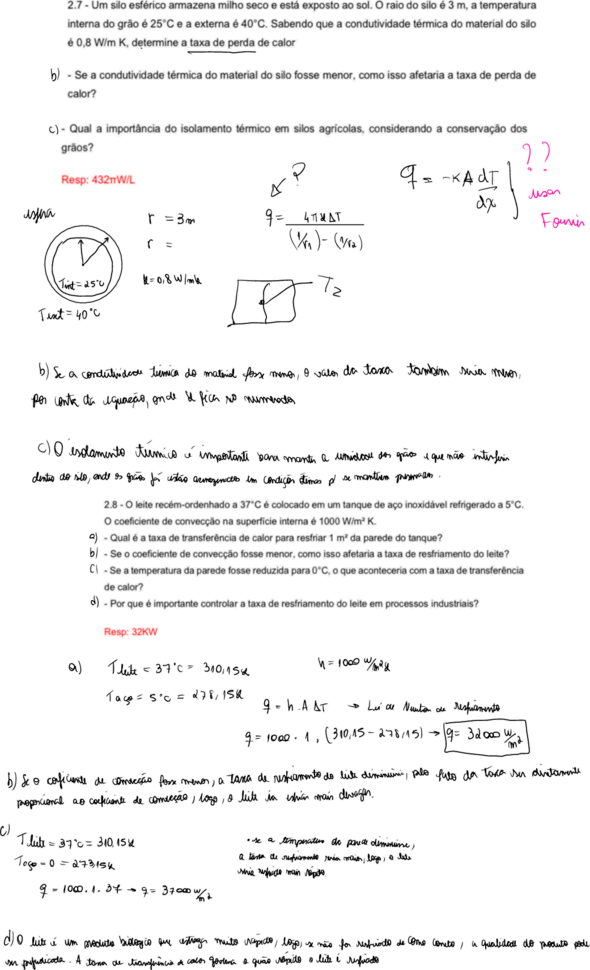 2.7 - Um silo esférico armazena milho seco e está exposto ao sol. O raio do silo é 3 m, a temperatura
interna do grão é 25°C e a externa é 40°C. Sabendo que a condutividade térmica do material do silo
é 0,8 W/m K, determine a taxa de perda de calor
b) - Se a condutividade térmica do material do silo fosse menor, como isso afetaria a taxa de perda de
calor?
c) - Qual a importância do isolamento térmico em silos agrícolas, considerando a conservação dos
grãos?
Resp: 432πW/L
?
q = -KA dT/dx
??
usar
Fourier
esfera
r = 3m
r =
k = 0,8 W/mk
q = 4πkΔT / (1/r1) - (1/r2)
Tint = 25°C
Text = 40°C
T2
b) Se a condutividade térmica do material fosse menor, o valor da taxa também seria menor,
por conta da equação, onde k fica no numerador
c) O isolamento térmico é importante para manter a umidade dos grãos e que não interfira
dentro do silo, onde os grãos já estão armazenados em condições ótimas p/ se
2.8 - O leite recém-ordenhado a 37°C é colocado em um tanque de aço inoxidável refrigerado a 5°C.
O coeficiente de convecção na superfície interna é 1000 W/m² K.
a) - Qual é a taxa de transferência de calor para resfriar 1 m² da parede do tanque?
b) - Se o coeficiente de convecção fosse menor, como isso afetaria a taxa de resfriamento do leite?
c) - Se a temperatura da parede fosse reduzida para 0°C, o que aconteceria com a taxa de transferência
de calor?
d) - Por que é importante controlar a taxa de resfriamento do leite em processos industriais?
Resp: 32KW
a) Tleite = 37°C = 310,15K
h = 1000 W/m²K
Taço = 5°C = 278,15K
q = h . A ΔT → Lei de Newton de resfriamento
q = 1000 . 1 . (310,15 - 278,15) → q = 32000 W/m²
b) Se o coeficiente de convecção fosse menor, a taxa de resfriamento do leite diminuiria, pelo fato da taxa ser diretamente
proporcional ao coeficiente de convecção, logo, o leite ia esfriar mais devagar.
c) Tleite = 37°C = 310,15K
Taço = 0 = 273,15K
q = 1000 . 1 . 37 → q = 37000 W/m²
• se a temperatura da parede diminuisse,
a taxa de resfriamento seria maior, logo, o leite
seria resfriado mais rápido
d) O leite é um produto biológico que estraga muito rápido, logo, se não for resfriado de correto, a qualidade do produto pode
ser prejudicada. A taxa de transferência de calor o quão rápido o leite é resfriado